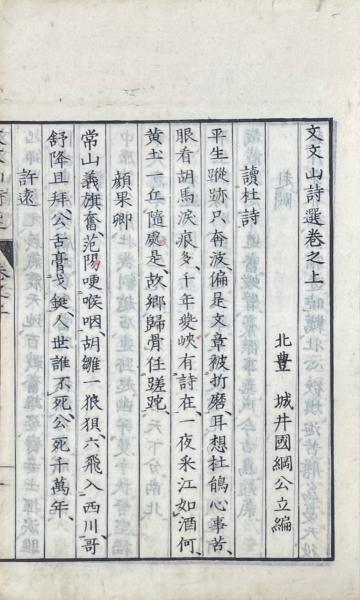 文文山詩選卷之上
北豊 城井國綱公立編
讀杜詩
平生蹤跡只奔波、偏是文章被折磨、耳想杜鵑心事苦、
眼看胡馬淚痕多、千年夔峽有詩在、一夜釆江如酒何、
黃土一丘隨處是、故鄉歸骨任蹉跎、
顔杲卿
常山義旗奮、范陽哽喉咽、胡雛一狼狽、六飛入西川、哥
舒降且拜、公舌膏戈鋋、人世誰不死、公死千萬年、
許遠